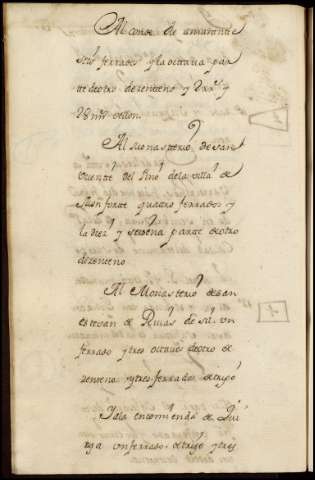 Al conde de amarante
seis ferrados y la octava par
te de otro de zenteno y Dos rs y
28 mrs vellon.
Al Monasterio de san
Vizente del Pino de la villa de
Monforte quatro ferrados y
la diez y seisena parte de otro
de zenteno
Al Monasterio de san
estevan de Rivas de sil un
ferrado y tres octavos de otro de
zenteno y tres ferrados de trigo
Y a la encomienda de
un ferrado de trigo y tres